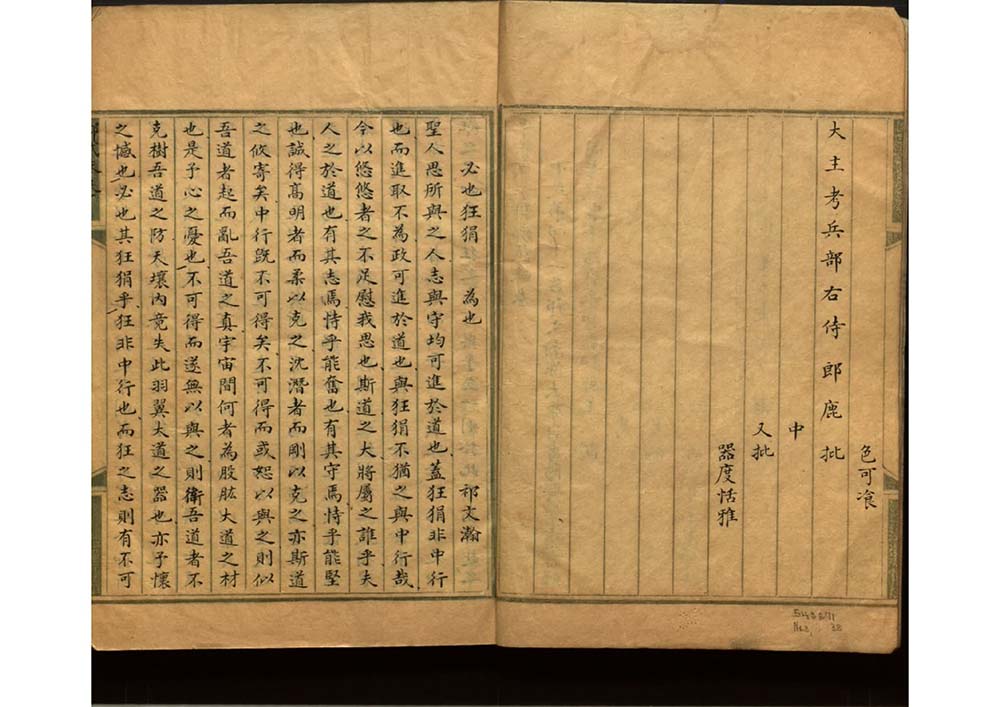 色可飡
大主考兵部右侍郎鹿 批
中
又批
器度恬雅
必也狂狷 為也 祁文瀚
聖人思所與之人志與守均可進於道也蓋狂狷非中行
也而進取不為政可進於道也與狂狷不猶之與中行哉
今以悠悠者之不足慰我思也斯道之大將屬之誰乎夫
人之於道也有其志焉恃乎能奮也有其守焉恃乎能堅
也誠得高明者而柔以克之沈潛者而剛以克之亦斯道
之攸寄矣中行旣不可得矣不可得而或恕以與之則似
吾道者起而亂吾道之真宇宙間何者為股肱大道之材
也是予心之憂也不可得而遂無以與之則衛吾道者不
克樹吾道之防天壤內竟失此羽翼大道之器也亦予懷
之憾也必也其狂狷乎狂非中行也而狂之志則有不可
38